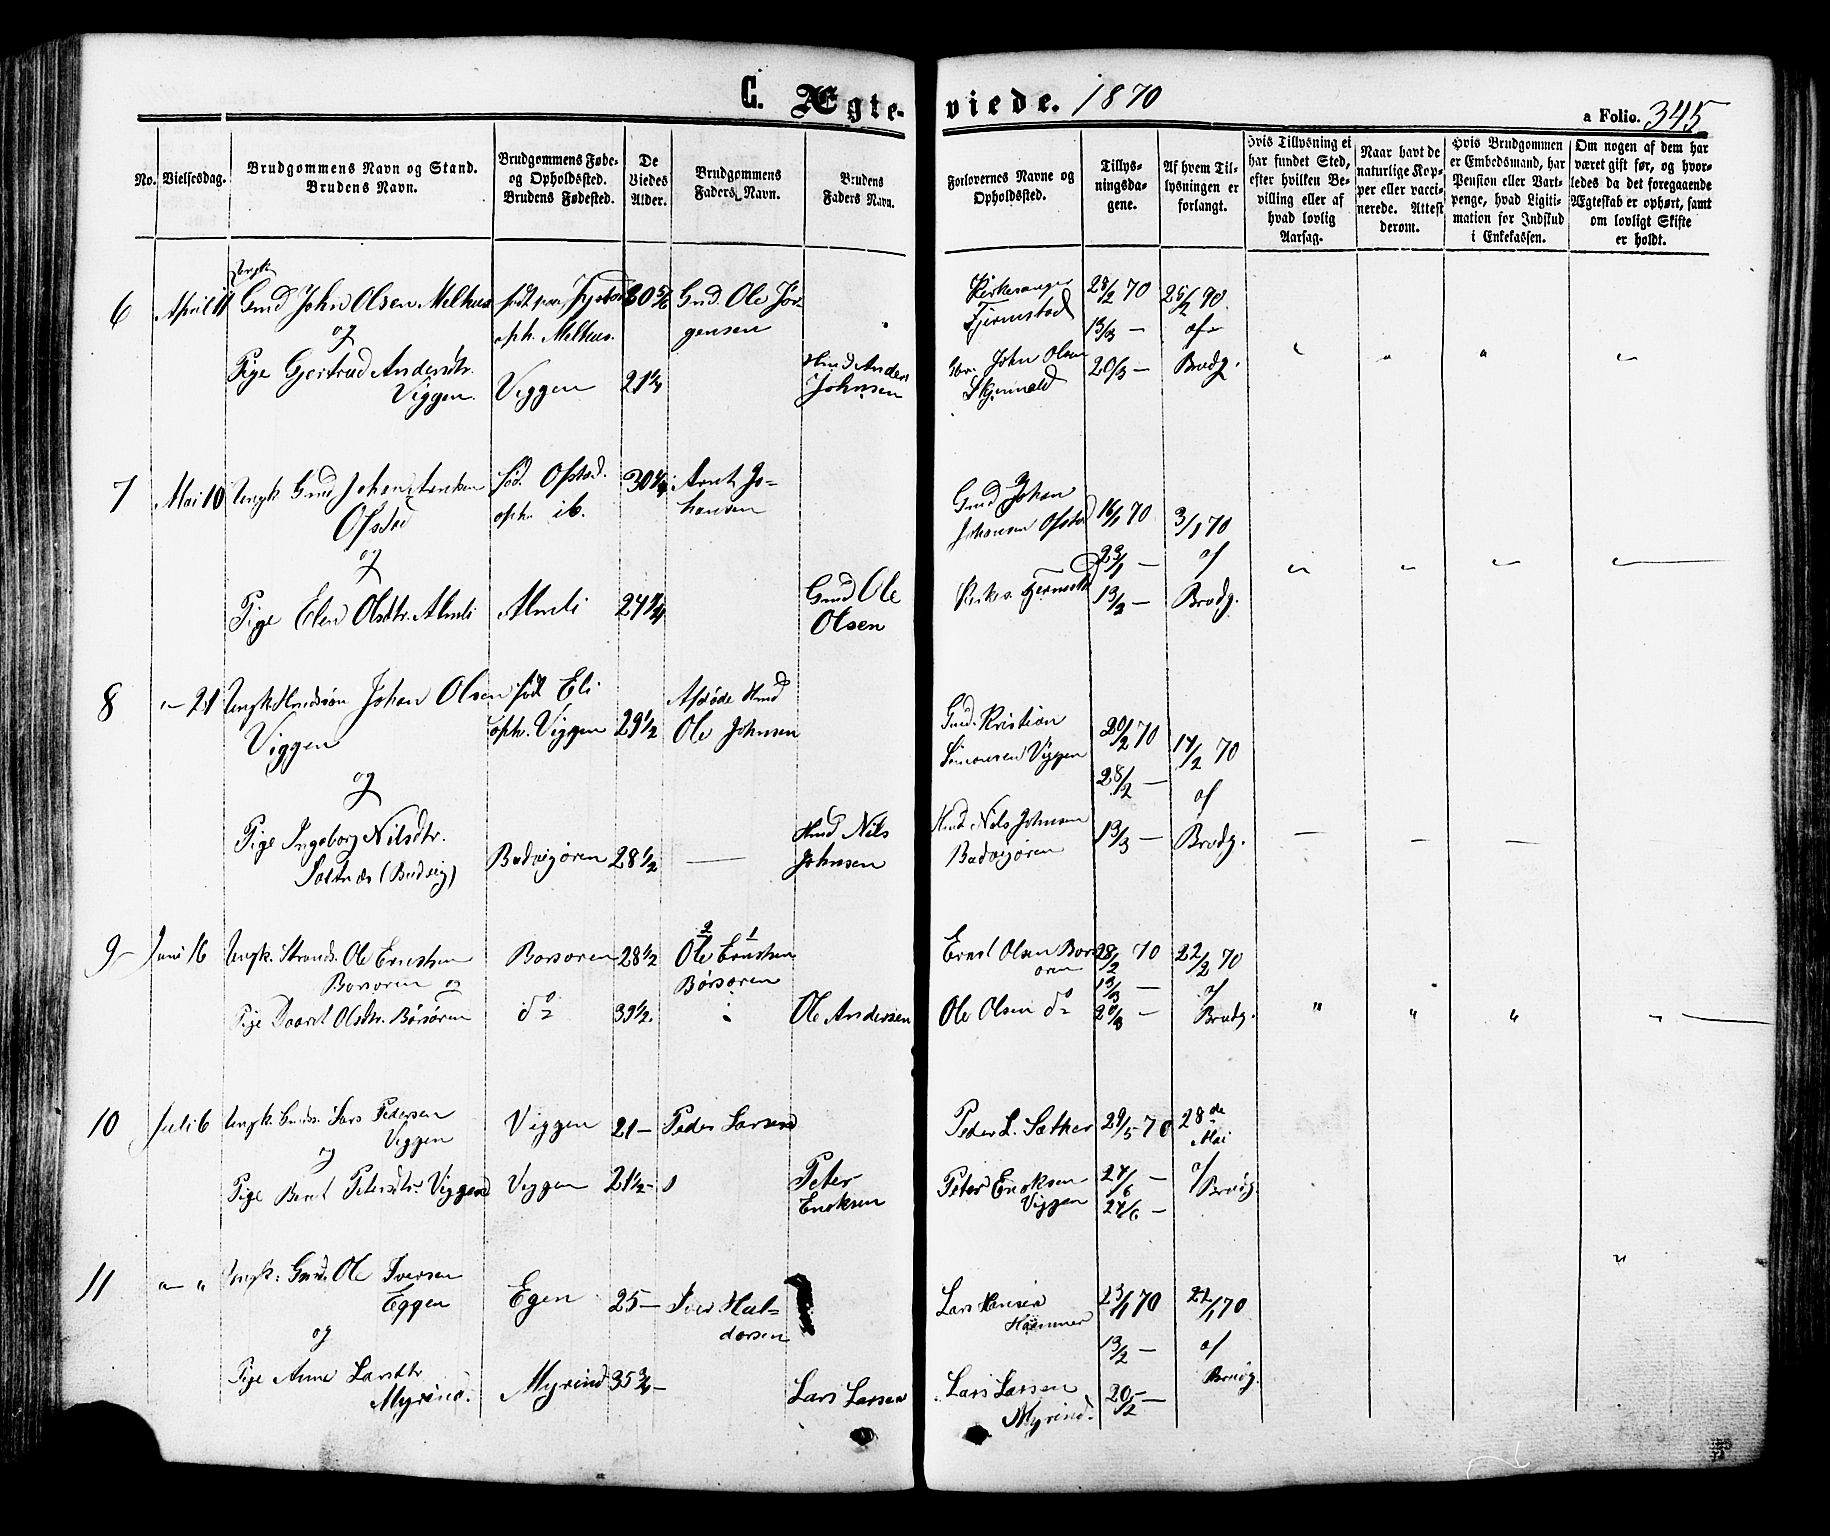 C. Ægteviede. 1870
a Folio. 345
No.
Vielsesdag.
Brudgommens Navn og Stand.
Brudens Navn.
Brudgommens Føde- og Opholdssted.
Brudens Fødested.
De Viedes Alder.
Brudgommens Faders Navn.
Brudens Faders Navn.
Forlovernes Navne og Opholdssted.
Tillysningsdagene.
Af hvem Tillysningen er forlangt.
Hvis Tillysning ei har fundet Sted, efter hvilken Bevilling eller af hvad lovlig Aarsag.
Naar havt de naturlige Kopper eller vaccinerede. Attest derom.
Hvis Brudgommen er Embedsmand, har Pension eller Vartpenge, hvad Ligitimation for Indskud i Enkekassen.
Om nogen af dem har været gift før, og hvorledes da det foregaaende Ægteskab er ophørt, samt om lovligt Skifte er holdt.
6 April 11 Ungk Gmd John Olsen Melhus
oph. Melhus.
Gmd. Ole Jörgensen
Kirkesanger Fjermstad
28/2 70
13/3 —
20/3 —
25/2 70
Brudg.
og
Pige Gjertrud Andersdtr. Viggen.
Viggen 21 1/4
Hmd Anders Johnsen
John Olsen
7 Mai 10 Ungk Gmd Johan Arntsen Ofstad
föd. Ofstad.
oph. ib.
30 1/4
Arnt Johansen
Gmd Johan Johansen Ofstad
16/1 70
23/1 —
13/2 —
3/1 70
af
Brudg.
og
Pige Elen Olsdtr. Almli
Almli 24 1/4
Gmd Ole Olsen
8 " 21 Ungk. Hmdssön Johan Olsen Viggen
föd Eli
oph. Viggen 29 1/2
Afdöde Hmd Ole Johnsen
Gmd. Kristian Simonsen Viggen
20/2 70
28/2 —
13/3 —
17/2 70
af
Brudg.
og
Pige Ingeborg Nilsdtr. Saltnæs (Budvig)
Budvigören 28 1/2 —
Hmd Nils Johnsen
Hmd. Nils Johnsen Budvigören
9 Juni 16 Ungk. Strands. Ole Ernstsen Borsoren og
Borsoren 28 1/2
Ole Ernstsen Börsören
Ernst Olsen Borsoren
28/2 70
13/3 —
20/3 —
22/2 70
af
Brudg.
Pige Olsdtr. Börsören
do 39 1/2.
Ole Andersen
Ole Olsen do
10 Juli 6 Ungk. Lars Pedersen Viggen
Viggen 21 —
Peder Larsen
Peder L. Sæther
29/5 70
28de Mai
af
Brudg.
og
Pige Beret Petersdtr. Viggen
Viggen 21 1/2 —
Peter Enoksen
Peter Enoksen Viggen
24/6 —
11 " " Ungk. Gmd. Ole Iversen Eggen
Egen 25 —
Iver Haldorsen
Lars Hansen Hammer
23/1 70
13/2 —
20/2 —
22/1 70
af
Brudg.
og
Pige Anne Larsdtr Myrind.
Myrind 35 3/4 —
Lars Larsen
Lars Larsen Myrind.